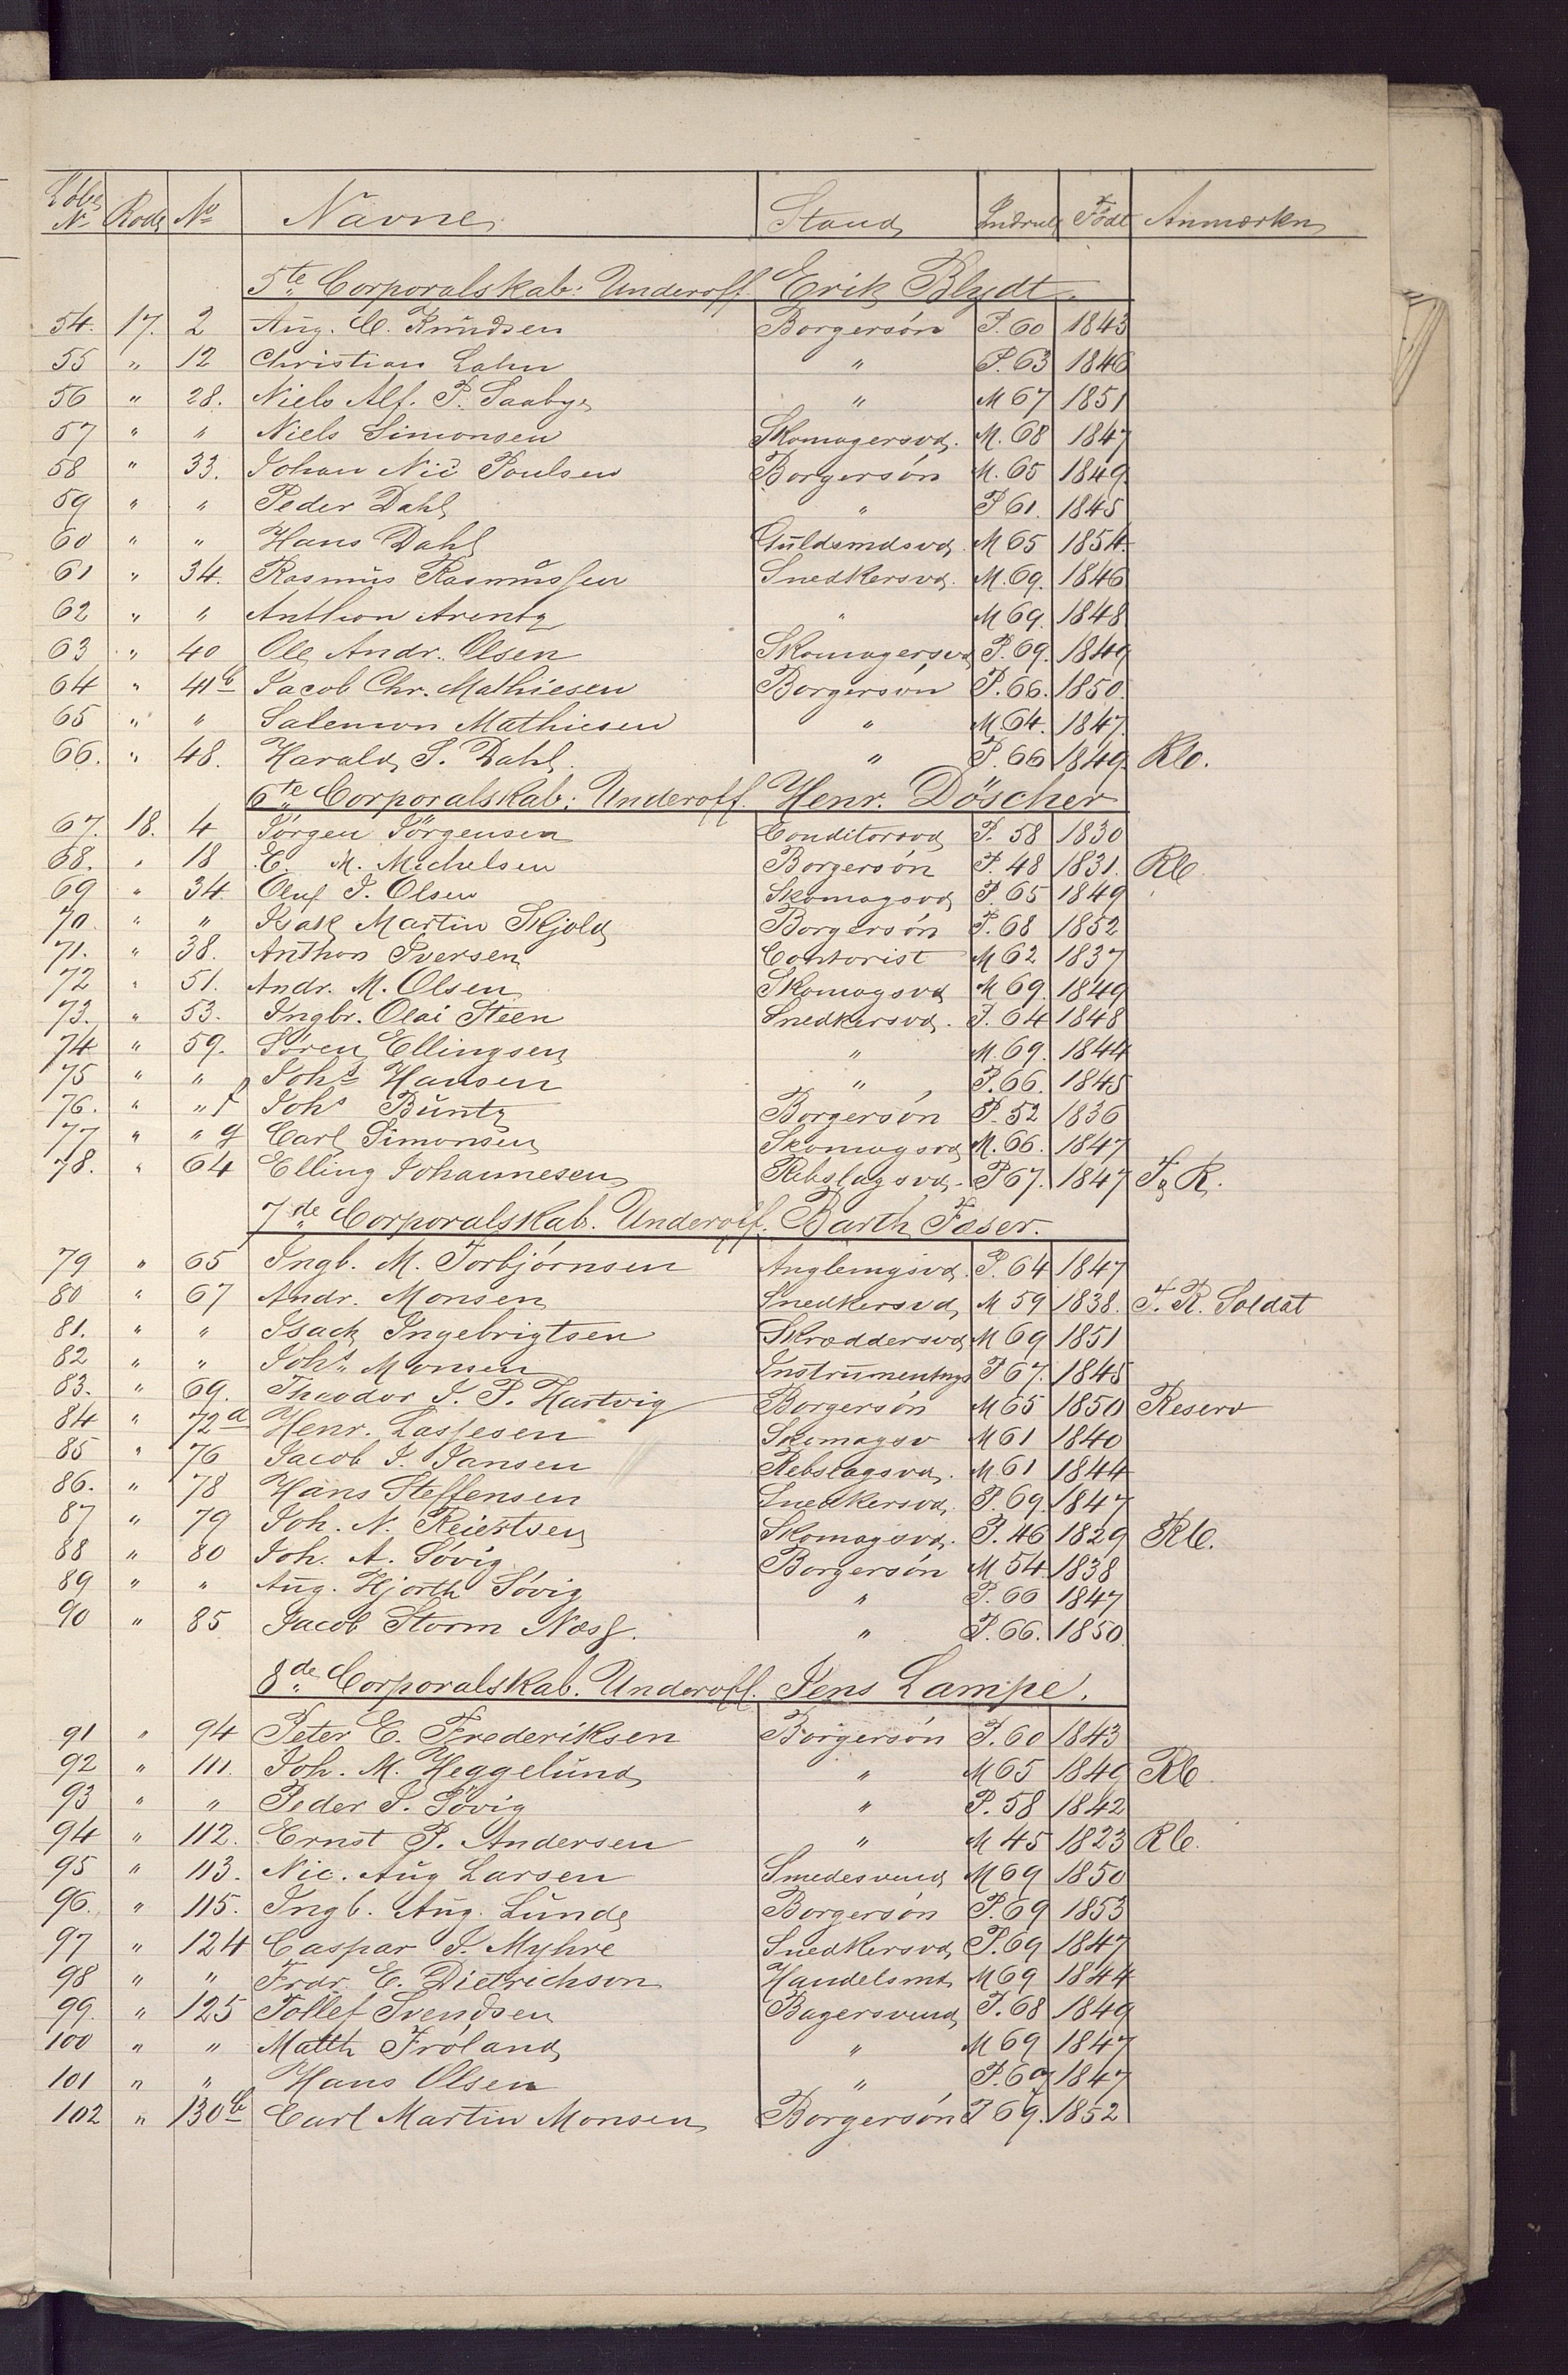 Løbe N° Rode N° Navne Stand Indrul Født Anmærkn
5te Corporalskab: Underoff. Erik Blydt.
54. 17. 2 Aug. C. Knudsen Borgersøn P. 60 1843
55 " 12 Christian Lahn " P. 63 1846
56 " 28. Niels Alf. P. Saabye " M 67 1851
57 " " Niels Simonsen Skomagersvd. M. 68 1847
58 " 33. Johan Nic Poulsen Borgersøn M. 65 1849
59 " " Peder Dahl " P 61. 1845
60 " " Hans Dahl Guldsmdsvd. M 65 1854.
61 " 34. Rasmus Rasmussen Snedkersvd. M. 69. 1846
62 " " Anthon Arentz " M 69. 1848
63 " 40 Ole Andr. Olsen Skomagersvd P. 69. 1849
64 " 41b Jacob Chr. Mathiesen Borgersøn P. 66. 1850.
65 " " Salemon Mathiesen " M. 64. 1847.
66. " 48. Harald S. Dahl. " P. 66 1849. RC.
6te Corporalskab: Underoff. Henr. Döscher
67. 18. 4 Jørgen Jørgensen Conditorsvd P. 58 1830
68. " 18 E. M. Michelsen Borgersøn P. 48 1831. RC.
69 " 34. Oluf J. Olsen Skomagsvd P. 65 1849
70. " " Isak Martin Skjold Borgersøn P. 68 1852
71. " 38. Anthon Iversen Contorist M 62 1837
72 " 51. Andr. M. Olsen Skomagsvd M 69. 1849
73. " 53. Ingbr. Olai Steen Snedkersvd. P. 64 1848
74 " 59. Søren Ellingsen " M. 69. 1844
75 " " Johs Hansen " P. 66. 1845
76. " " f Johs Buntz Borgersøn P. 52 1836
77 " " g Carl Simonsen Skomagsvd M. 66. 1847
78. " 64 Elling Johannesen Rebslagsvd. P 67. 1847 F. R.
7de Corporalskab. Underoff. Barth Fæser.
79 " 65 Ingb. M. Torbjørnsen P. 64 1847
80 " 67 Andr. Monsen Snedkersvd M 59 1838. F. R. Soldat
81. " " Isack Ingebrigtsen Skræddersvd M 69 1851
82 " " Johs. Monsen P 67. 1845
83. " 69. Theodor J. P. Hartvig Borgersøn M 65 1850 Reserv
84 " 72a Henr. Lassesen Skomagsv M 61 1840
85 " 76 Jacob J. Jansen Rebslagsvd. M 61 1844
86. " 78 Hans Steffensen Snedkersvd. P. 69. 1847
87 " 79 Joh. N. Reiertsen Skomagsvd. P. 46 1829 RC.
88 " 80 Joh. A. Søvig Borgersøn M 54. 1838
89 " " Aug. Hjorth Søvig " P. 66 1847
90 " 85 Jacob Storm Næss. " P. 66. 1850
8de Corporalskab. Underoff. Jens Lampe.
91 " 94 Peter C. Frederiksen Borgersøn P. 60 1843
92 " 111. Joh. M. Heggelund " M 65 1849 RC
93 " " Peder S. Søvig " P. 58 1842
94 " 112. Ernst P. Andersen " M. 45 1823 RC.
95 " 113. Nic. Aug Larsen Smedesvend M 69 1850
96. " 115. Ingb. Aug. Lunde Borgersøn P. 69 1853
97 " 124 Caspar J. Myhre Snedkersvd P. 69 1847
98 " " Fredr. E. Dietrichson Handelsmd M 69 1844
99. " 125 Tollef Svendsen Bagersvend P. 68 1849
100 " " Matth Frøland " M 69 1847
101 " " Hans Olsen " P. 69 1847
102 " 130b Carl Martin Monsen Borgersøn P 69. 1852